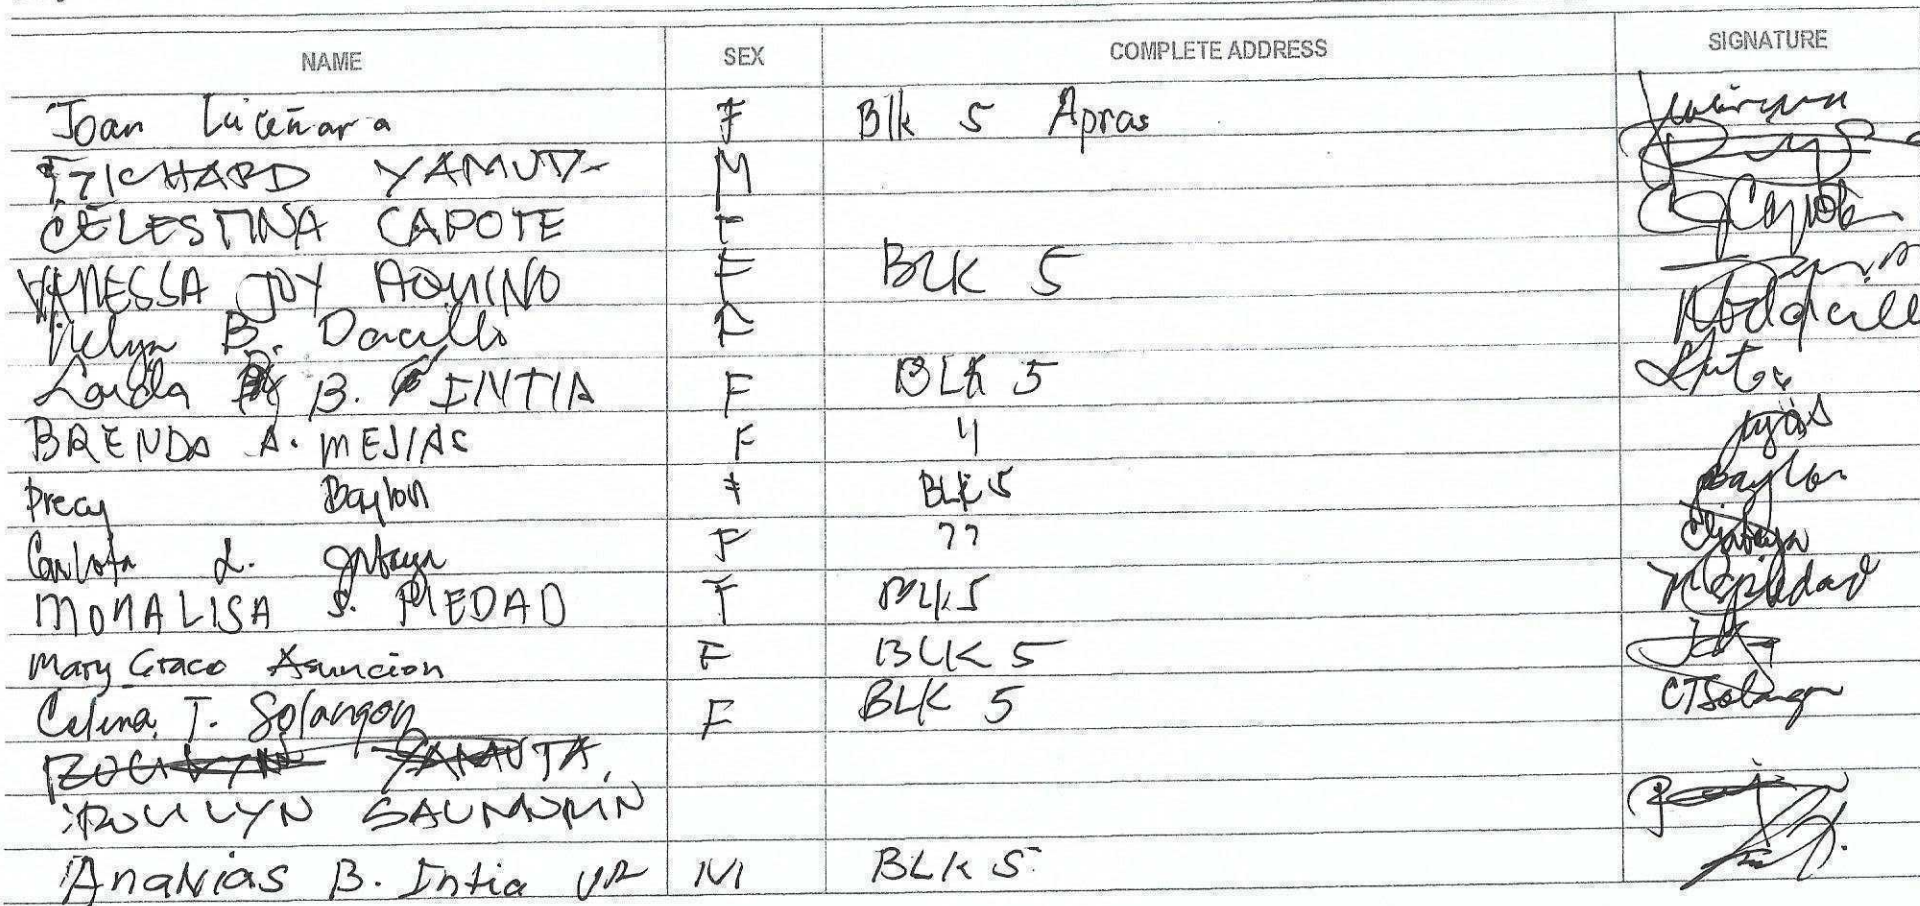 NAME SEX COMPLETE ADDRESS SIGNATURE
Joan Luceñara F Blk 5 Apras
RICHARD YAMUTA M
CELESTINA CAPOTE F
VANESSA JOY AQUINO F BLK 5
B. Dacillo F
Loida B. INTIA F BLK 5
BRENDA A. MEJIAS F 4
Precy Baylon F BLK 5 Baylon
Carlota L. F ??
MONALISA S. PIEDAD F BLK 5
Mary Grace Asuncion F BLK 5
Celina T. Solangon F BLK 5 CTSolangon
YAMUTA
Ananias B. Intia JR M BLK 5